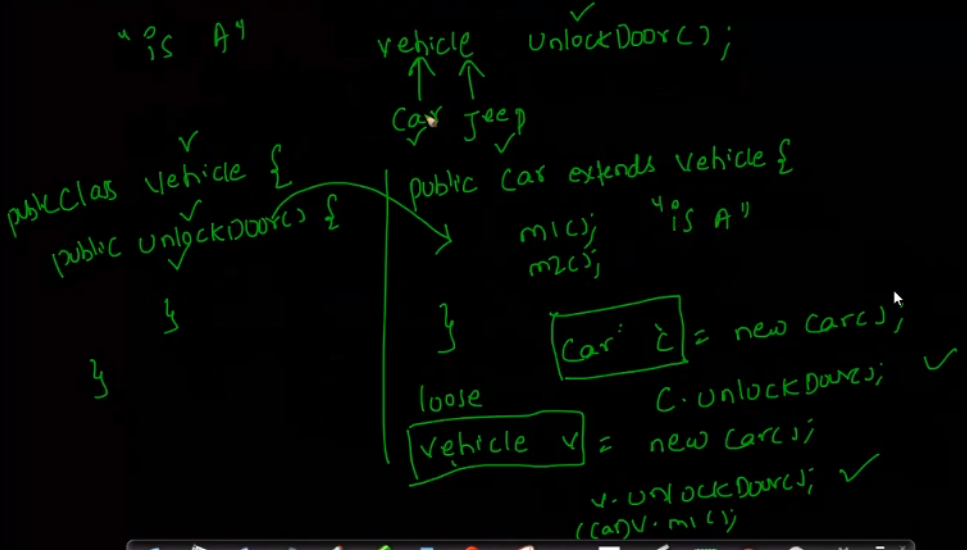 "is A"
vehicle unlockDoor();
Car Jeep
public class Vehicle {
public unlockDoor() {
}
}
public Car extends Vehicle {
m1(); "is A"
m2();
}
Car c = new Car();
loose
c.unlockDoor();
vehicle v = new Car();
v.unlockDoor();
((Car)v.m1();